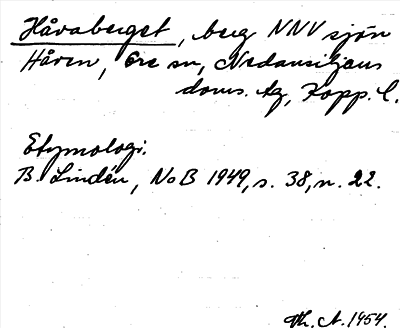 Håvaberget, berg NNV sjön
Håven, Ore sn, Nedansiljans
doms. tg, Kopp. l.
Etymologi.
B. Lindén, NoB 1949, s. 38, n. 22.
Th. A. 1954.